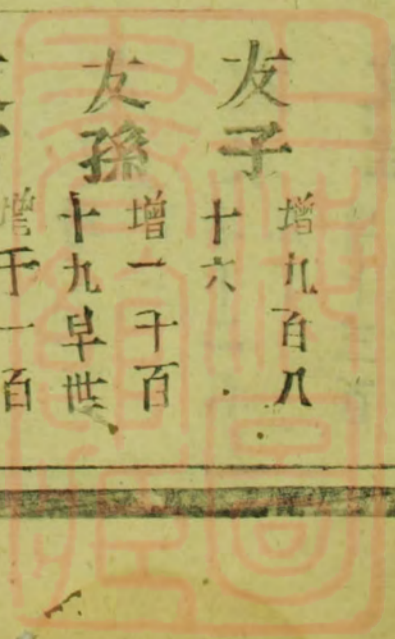 友子
增九百八
十六
友孫
增一千百
十九早世
增千一百